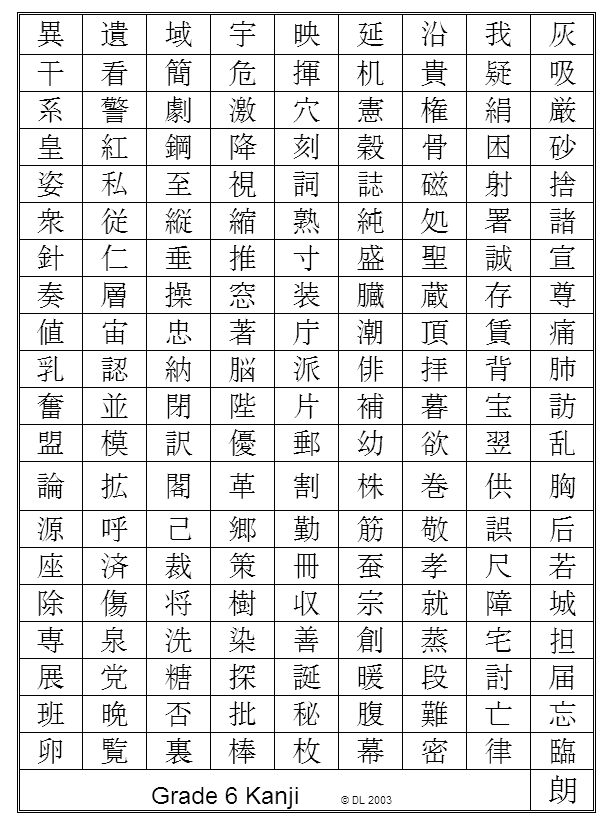 異 遺 域 宇 映 延 沿 我 灰
干 看 簡 危 揮 机 貴 疑 吸
系 警 劇 激 穴 憲 権 絹 厳
皇 紅 鋼 降 刻 穀 骨 困 砂
姿 私 至 視 詞 誌 磁 射 捨
衆 従 縦 縮 熟 純 処 署 諸
針 仁 垂 推 寸 盛 聖 誠 宣
奏 層 操 窓 装 臓 蔵 存 尊
値 宙 忠 著 庁 潮 頂 賃 痛
乳 認 納 脳 派 俳 拝 背 肺
奮 並 閉 陛 片 補 暮 宝 訪
盟 模 訳 優 郵 幼 欲 翌 乱
論 拡 閣 革 割 株 巻 供 胸
源 呼 己 郷 勤 筋 敬 誤 后
座 済 裁 策 冊 蚕 孝 尺 若
除 傷 将 樹 収 宗 就 障 城
専 泉 洗 染 善 創 蒸 宅 担
展 党 糖 探 誕 暖 段 討 届
班 晩 否 批 秘 腹 難 亡 忘
卵 覧 裏 棒 枚 幕 密 律 臨
Grade 6 Kanji © DL 2003 朗